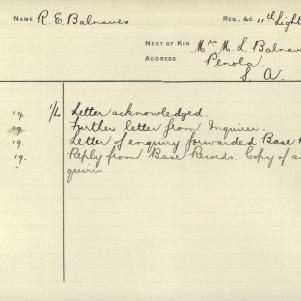 NAME R. E. Balnaves
REG. &C. 11th Light
NEXT OF KIN Mrs M. L. Balnav
ADDRESS Penola.
S. A.
19. 1/4 Letter acknowledged.
19. Further letter from Inquirer.
19. Letter of enquiry forwarded Base
19. Reply from Base Records. Copy of
quirer